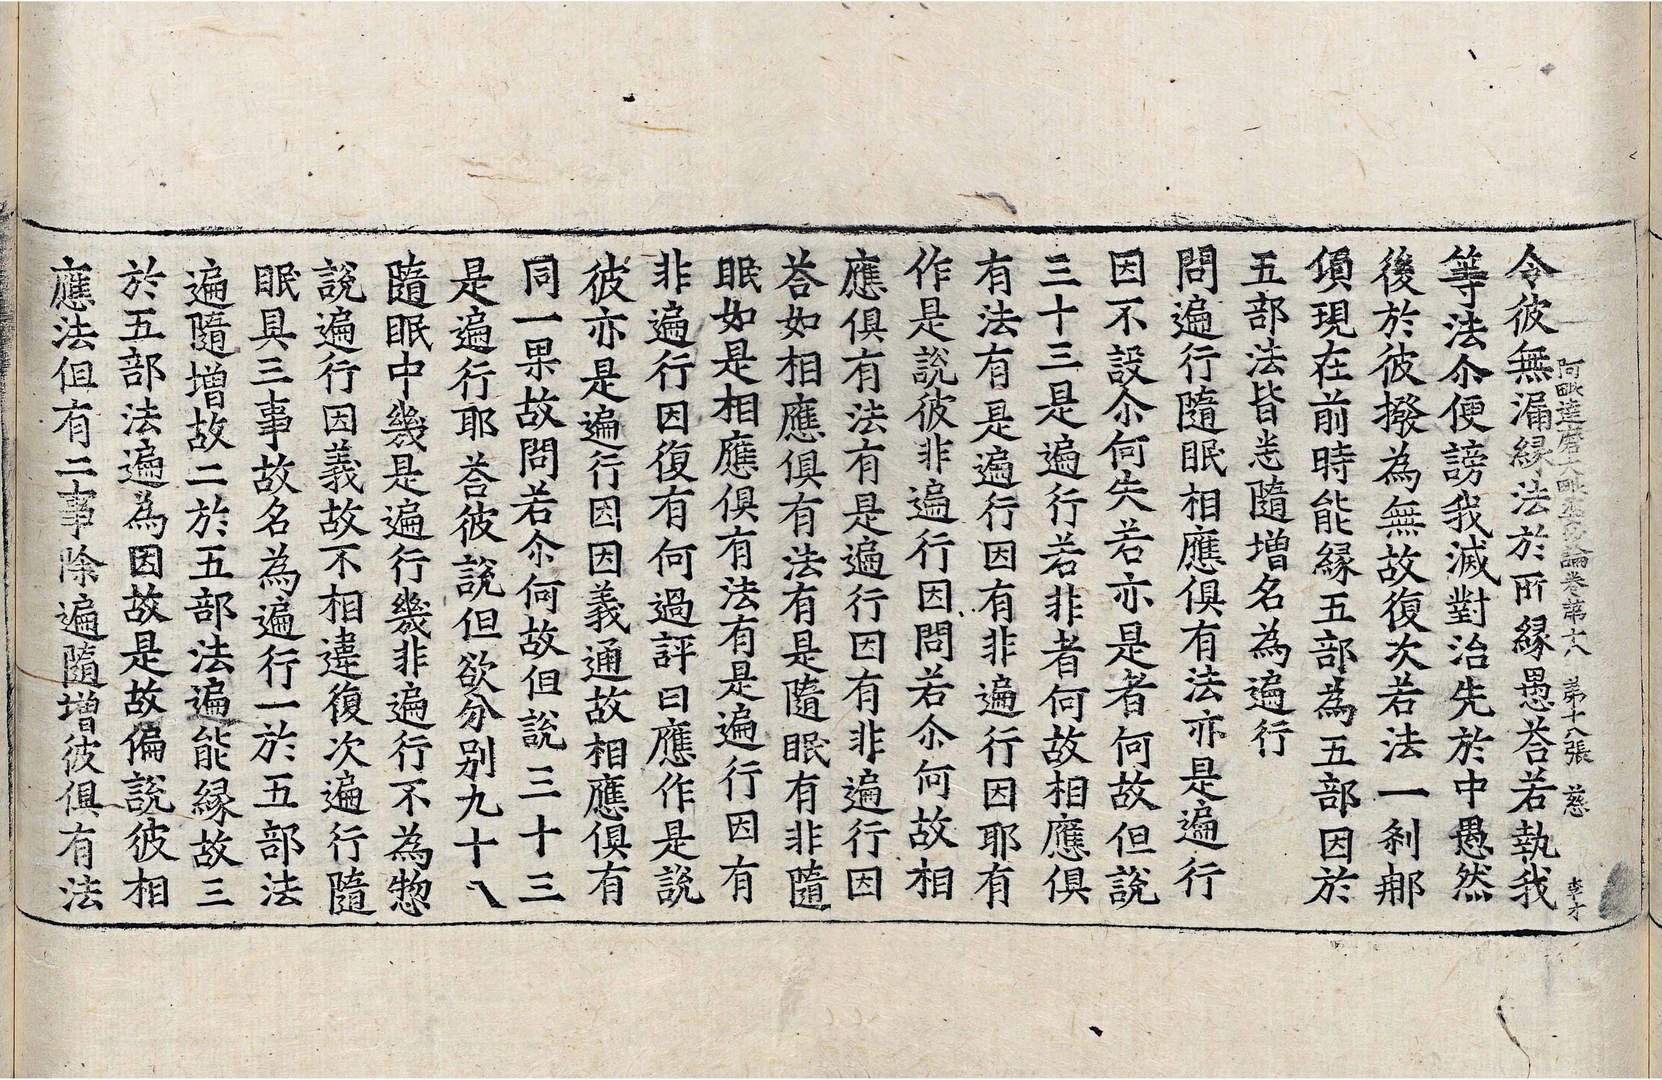 阿毗達磨大毗婆沙論卷第十八　第十八張　慈　李才
令彼無漏縁法於所縁愚荅若執我
等法尒便謗我滅對治先於中愚然
後於彼撥為無故復次若法一刹那
傾現在前時能縁五部為五部因於
五部法皆悉隨增名為遍行
問遍行隨眠相應俱有法亦是遍行
因不設尒何失若亦是者何故但說
三十三是遍行若非者何故相應俱
有法有是遍行因有非遍行因耶有
作是說彼非遍行因問若尒何故相
應俱有法有是遍行因有非遍行因
荅如相應俱有法有是隨眠有非隨
眠如是相應俱有法有是遍行因有
非遍行因復有何過評曰應作是說
彼亦是遍行因因義通故相應俱有
同一果故問若尒何故但說三十三
是遍行耶荅彼說但欲分別九十八
隨眠中幾是遍行幾非遍行不為惣
說遍行因義故不相違復次遍行隨
眠具三事故名為遍行一於五部法
遍隨增故二於五部法遍能縁故三
於五部法遍為因故是故偏說彼相
應法但有二事除遍隨增彼俱有法